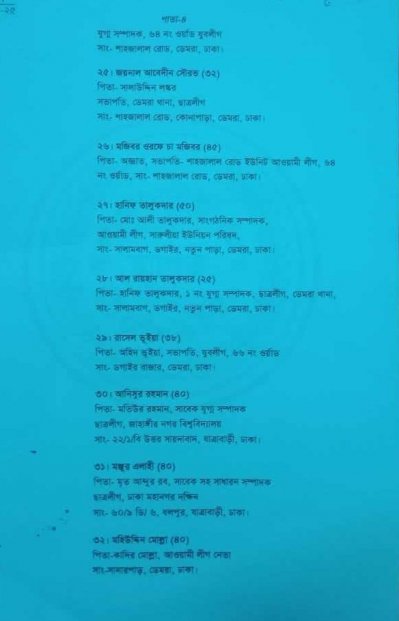 -২৫
পাতা-৪
যুগ্ম সম্পাদক, ৬৪ নং ওয়ার্ড যুবলীগ
সাং- শাহজালাল রোড, ডেমরা, ঢাকা।
২৫। জয়নাল আবেদীন সৌরভ (৩২)
পিতা- সালাউদ্দিন লস্কর
সভাপতি, ডেমরা থানা, ছাত্রলীগ
সাং- শাহজালাল রোড, কোনাপাড়া, ডেমরা, ঢাকা।
২৬। মজিবর ওরফে চা মজিবর (৪৫)
পিতা- অজ্ঞাত, সভাপতি- শাহজালাল রোড ইউনিট আওয়ামী লীগ, ৬৪
নং ওর্য়াড, সাং- শাহজালাল রোড, ডেমরা, ঢাকা।
২৭। হানিফ তালুকদার (৫০)
পিতা- মোঃ আলী তালুকদার, সাংগঠনিক সম্পাদক,
আওয়ামী লীগ, সারুলীয়া ইউনিয়ন পরিষদ,
সাং- সালামবাগ, ডগাইর, নতুন পাড়া, ডেমরা, ঢাকা।
২৮। আল রায়হান তালুকদার (২৫)
পিতা- হানিফ তালুকদার, ১ নং যুগ্ম সম্পাদক, ছাত্রলীগ, ডেমরা থানা,
সাং- সালামবাগ, ডগাইর, নতুন পাড়া, ডেমরা, ঢাকা।
২৯। রাসেল ভূইয়া (৩৮)
পিতা- অহিদ ভূইয়া, সভাপতি, যুবলীগ, ৬৬ নং ওর্য়াড
সাং- ডগাইর বাজার, ডেমরা, ঢাকা।
৩০। আনিসুর রহমান (৪০)
পিতা- মতিউর রহমান, সাবেক যুগ্ম সম্পাদক
ছাত্রলীগ, জাহাঙ্গীর নগর বিশ্ববিদ্যালয়
সাং- ২২/১/বি উত্তর সায়দাবাদ, যাত্রাবাড়ী, ঢাকা।
৩১। মঞ্জুর এলাহী (৪০)
পিতা- মৃত আব্দুর রব, সাবেক সহ সাধারন সম্পাদক
ছাত্রলীগ, ঢাকা মহানগর দক্ষিন
সাং- ৬০/৯ ডি/ ৬, ধলপুর, যাত্রাবাড়ী, ঢাকা।
৩২। মহিউদ্দিন মোল্লা (৪০)
পিতা-কাদির মোল্লা, আওয়ামী লীগ নেতা
সাং-সানারপাড়, ডেমরা, ঢাকা।